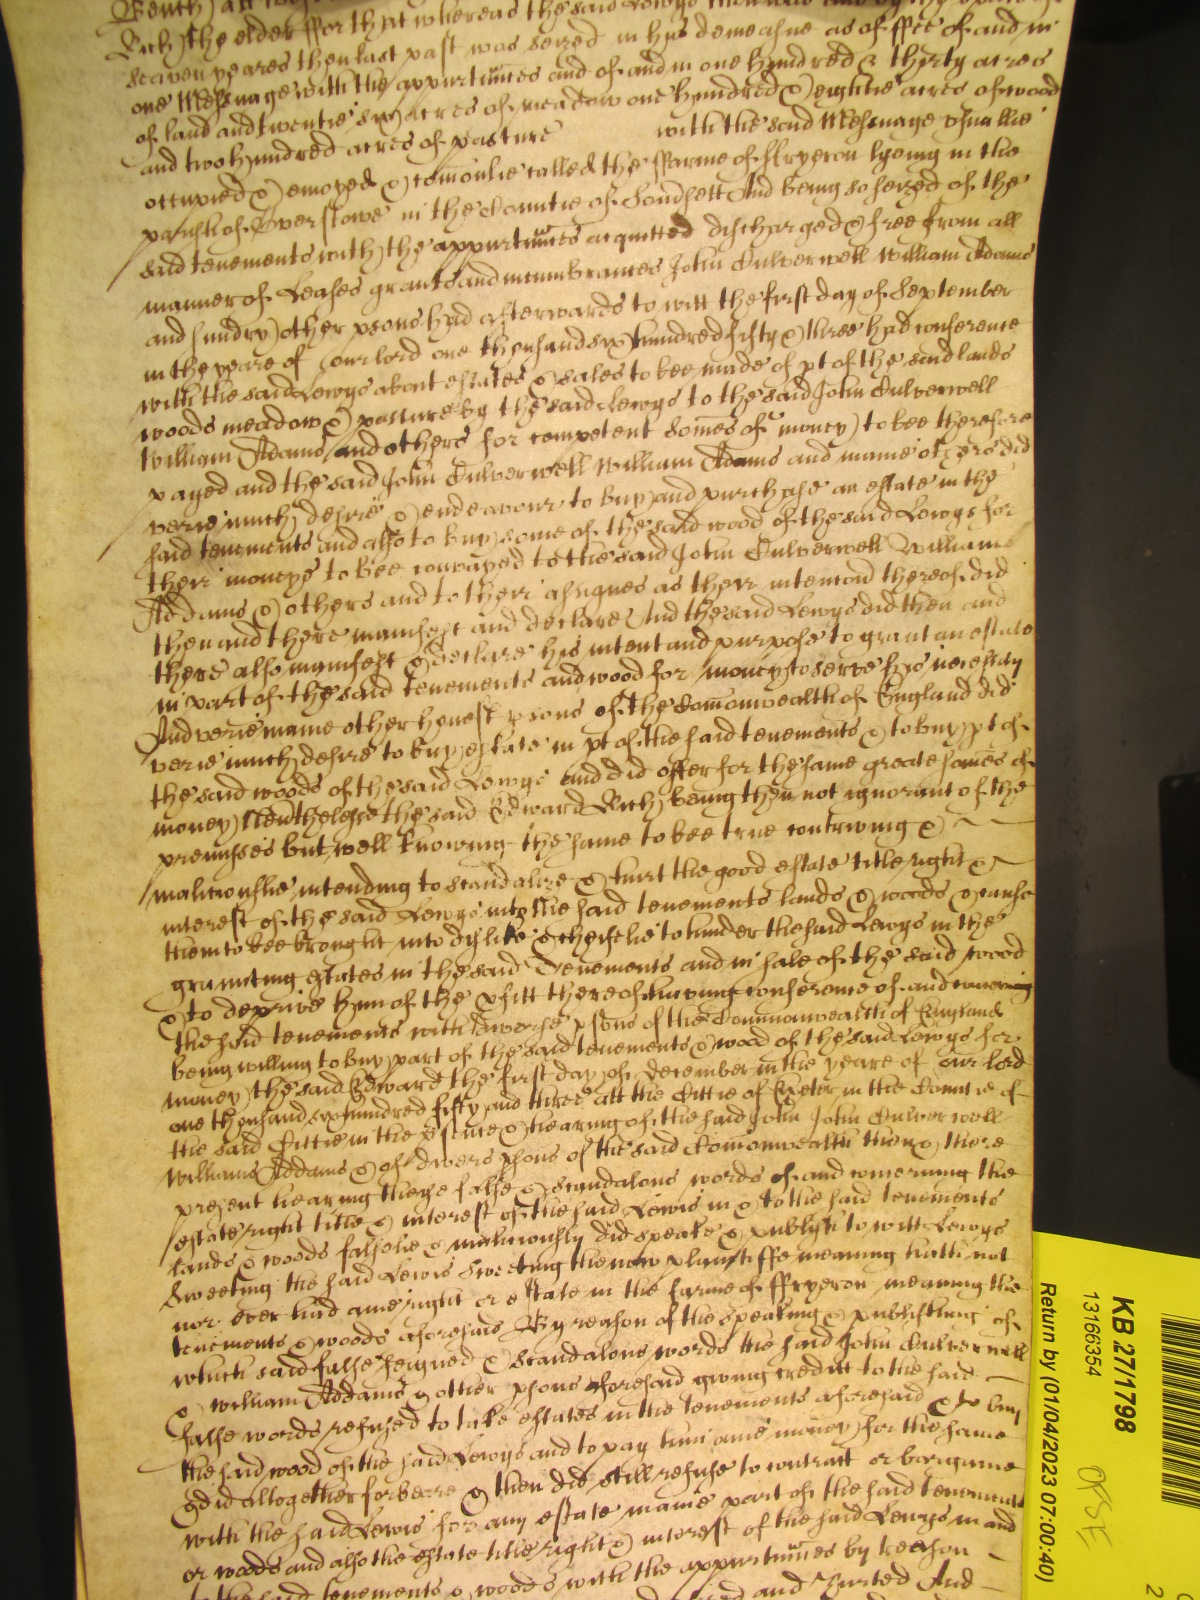 Rich the elder ffor that whereas the said Lewys
seaven yeares then last past was seized in his demeasne as of ffee of and in
one Messuage with the appurtnnces and of and in one hundred & thirty acres
of land and twentie six acres of meadow one hundred & eightie acres of wood
and two hundred acres of pasture with the said Messuage usuallie
occupied & enioyed & comonlie called the ffarme of ffryeron lyeing in the
parish of Over stowe in the Countie of Somsett And being so seized of the
said tenements with the appurtnnces acquitted discharged & free from all
manner of Leases grants and incumbrances John Culverwell William Adams
and sundry other psons had afterwards to witt the first day of September
in the yeare of our lord one thousand six hundred fifty & three had conference
with the said Lewys about estates & sales to bee made of pt of the said lands
woods meadow & pasture by the said Lewys to the said John Culverwell
William Adams and others for competent somes of money to bee therefore
payed and the said John Culverwell William Adams and manie others did
verie much desire & endeavour to buy and purchase an estate in the
said tenements and also to buy some of the said wood of the said Lewys for
their moneys to bee conveyed to the said John Culverwell William
Addams & others and to their assignes as their intencon thereof did
then and there manifest and declare And the said Lewys did then and
there also manifest & declare his intent and purpose to grant an estate
in part of the said tenements and wood for money to serve his necessity
And verie manie other honest psons of the Comonwealth of England did
verie much desire to buy estate in pt of the said tenements & to buy pt of
the said woods of the said Lewys and did offer for the same greate somes of
money Neverthelesse the said Edward Rich being then not ignorant of the
premisses but well knowing the same to bee true contriving &
malitiouslie intending to scandalize & hurt the good estate title right &
interest of the said Lewys into the said tenements lands & woods & cause
them to bee brought into dislike & cheifelie to hinder the said Lewys in the
granting estates in the said Tenements and in sale of the said wood
& to deprive him of the pfitt thereof having conference of and concerning
the said tenements with diverse psons of the Commonwealth of England
being willing to buy part of the said tenements & wood of the said Lewys for
money the said Edward the first day of December in the yeare of our lord
one thousand six hundred fifty and three att the Cittie of Exeter in the Countie of
the said Cittie in the psence & hearing of the said John John Culverwell
William Addams & of divers psons of the said Comonwealth then & there
present hearing these false & scandalous words of and concerning the
estate right title & interest of the said Lewis in & to the said tenements
lands & woods falselie & malitiously did speake & publish to witt Lewys
Sweeting the said Lewis Sweeting the now plaintiffe meaning hath not
nor ever had anie right or estate in the farme of ffryeron meaning the
tenements & woods aforesaid By reason of the speaking & publishing of
which said false feigned & scandalous words the said John Culverwell
& William Addams & other psons aforesaid giving credit to the said
false words refused to take estates in the tenements aforesaid & to buy
the said wood of the said Lewys and to pay him anie money for the same
& did altogether forbeare & then did & still refuse to contract or bargaine
with the said Lewis for any estate in anie part of the said tenements
or woods and also the estate title right & interest of the said Lewys in and
to the said tenements & woods with the appurtnnces by reason
and Hurted And
KB 27/1798
13166354
Return by (01/04/2023 07:00:40)